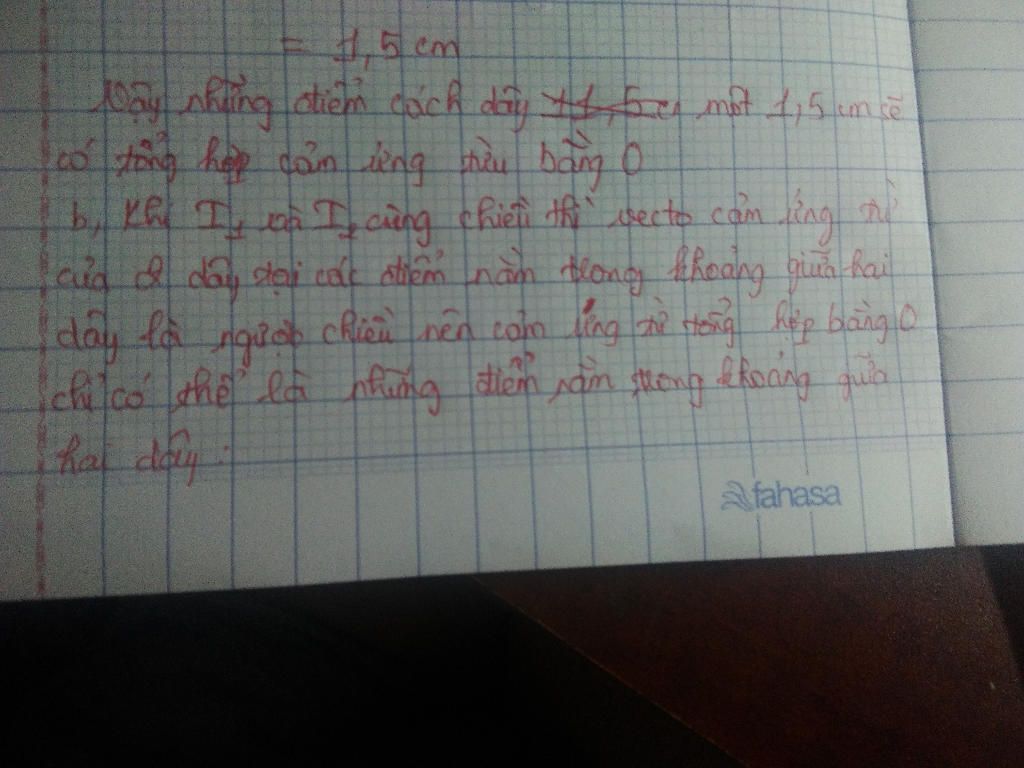 = 1,5 cm
Vậy những điểm cách dây 11,5 c một 1,5 cm sẽ
có tổng hợp cảm ứng từ bằng 0
b, Khi I₁ và I₂ cùng chiều thì vecto cảm ứng từ
của 2 dây tại các điểm nằm trong khoảng giữa hai
dây là ngược chiều nên cảm ứng từ tổng hợp bằng 0
chỉ có thể là những điểm nằm trong khoảng giữa
hai dây :
fahasa